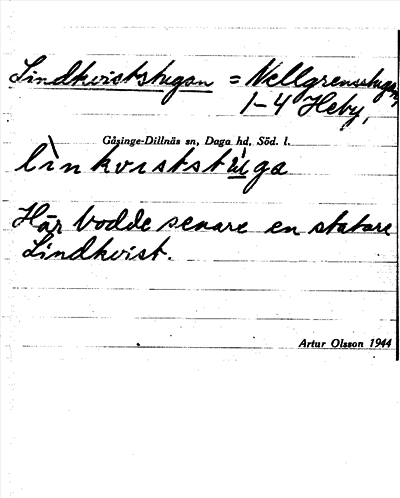 Lindkviststugan = Nellgrensstugan,
1-4 Heby,
Gåsinge-Dillnäs sn, Daga hd, Söd. l.
lìnkvistst́ùga
Här bodde senare en statare
Lindkvist.
Artur Olsson 1944